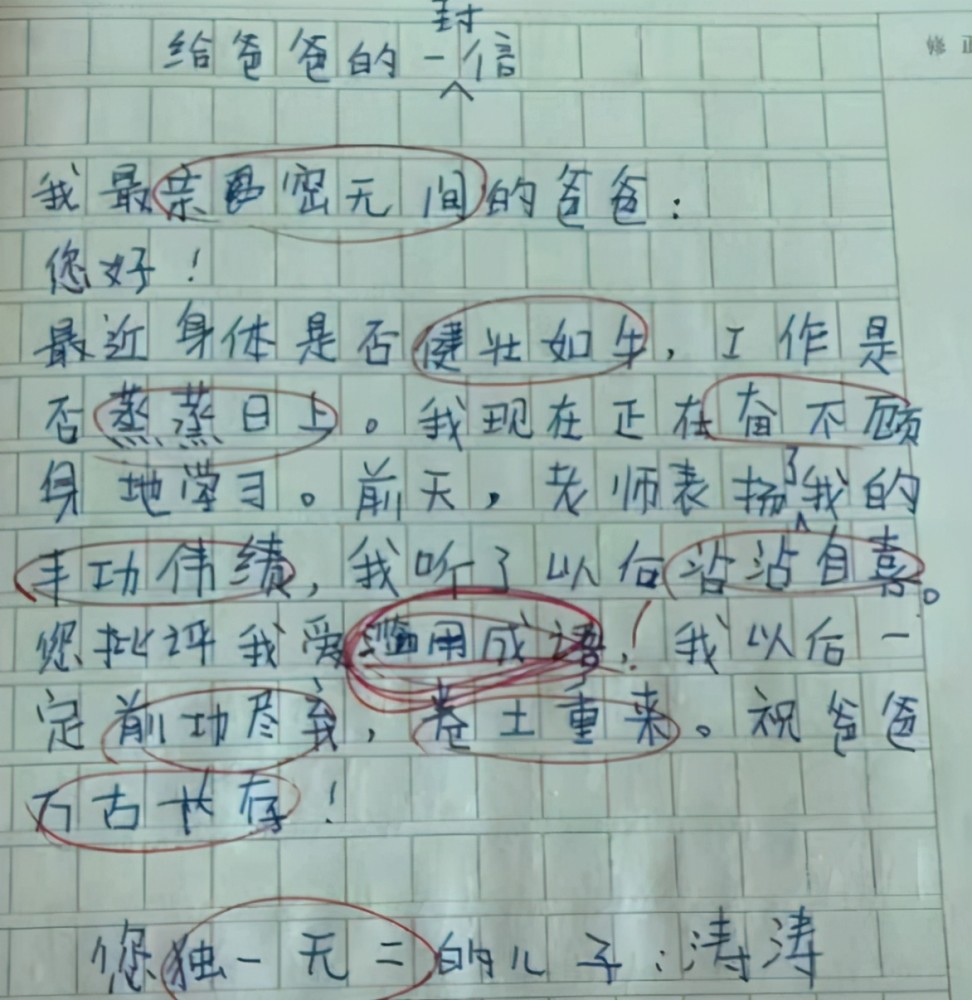 给爸爸的一封信
修正
我最亲密无间的爸爸：
您好！
最近身体是否健壮如牛，工作是
否蒸蒸日上。我现在正在奋不顾
身地学习。前天，老师表扬了我的
丰功伟绩，我听了以后沾沾自喜。
您批评我爱滥用成语！我以后一
定前功尽弃，卷土重来。祝爸爸
万古长存！
您独一无二的儿子：涛涛